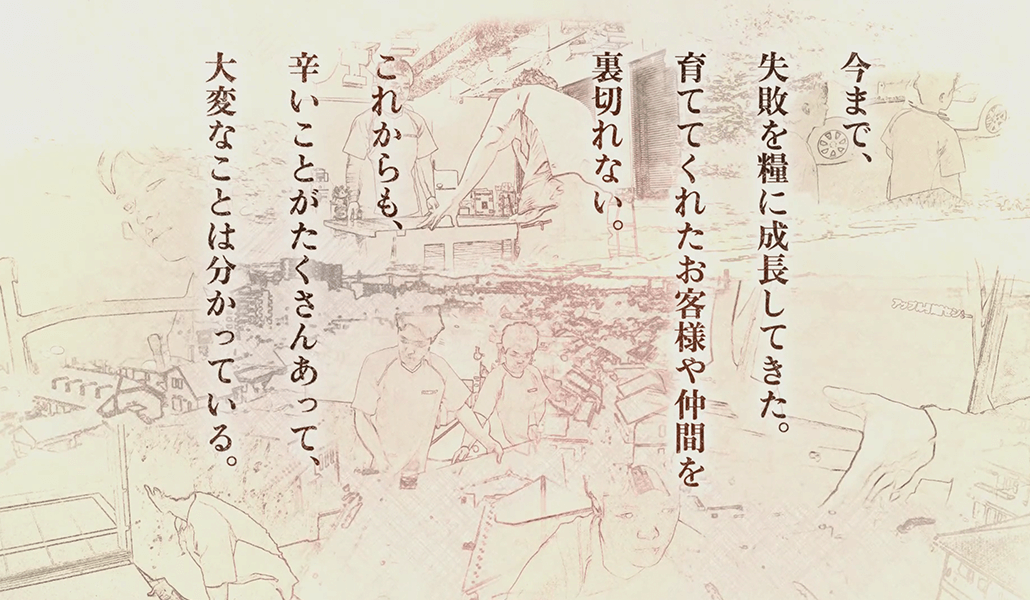 今まで、
失敗を糧に成長してきた。
育ててくれたお客様や仲間を
裏切れない。
これからも、
辛いことがたくさんあって、
大変なことは分かっている。